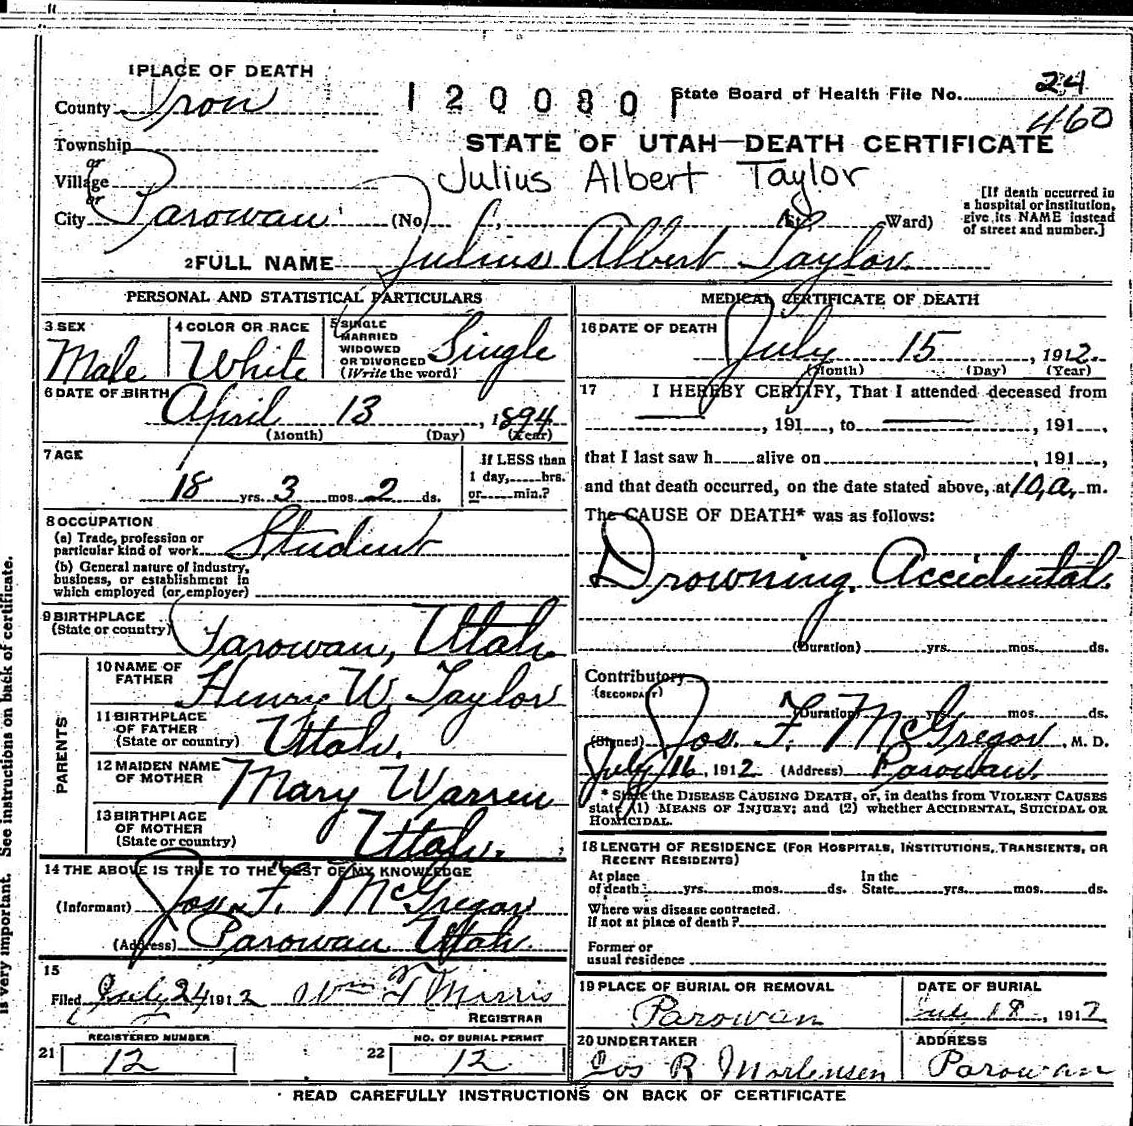 1 PLACE OF DEATH
County Iron
1200801 State Board of Health File No. 24
460
Township
or
Village
or
City Parowan (No. St. Ward)
STATE OF UTAH—DEATH CERTIFICATE
Julius Albert Taylor
[If death occurred in
a hospital or institution,
give its NAME instead
of street and number.]
2 FULL NAME Julius Albert Taylor
PERSONAL AND STATISTICAL PARTICULARS
3 SEX
Male
4 COLOR OR RACE
White
5 SINGLE
MARRIED
WIDOWED
OR DIVORCED
(Write the word)
Single
6 DATE OF BIRTH
April 13, 1894
(Month) (Day) (Year)
7 AGE
18 yrs. 3 mos. 2 ds.
If LESS than
1 day, hrs.
or min.?
8 OCCUPATION
(a) Trade, profession or
particular kind of work Student
(b) General nature of industry,
business, or establishment in
which employed (or employer)
9 BIRTHPLACE
(State or country) Parowan, Utah.
PARENTS
10 NAME OF
FATHER Henry W. Taylor
11 BIRTHPLACE
OF FATHER
(State or country) Utah.
12 MAIDEN NAME
OF MOTHER Mary Warren
13 BIRTHPLACE
OF MOTHER
(State or country) Utah.
14 THE ABOVE IS TRUE TO THE BEST OF MY KNOWLEDGE
(Informant) Jos. F. McGregor
(Address) Parowan Utah.
15
Filed July 24 1912 Wm T Morris
REGISTRAR
21 REGISTERED NUMBER
12
22 NO. OF BURIAL PERMIT
12
MEDICAL CERTIFICATE OF DEATH
16 DATE OF DEATH
July 15, 1912.
(Month) (Day) (Year)
17 I HEREBY CERTIFY, That I attended deceased from
, 191 , to , 191 ,
that I last saw h alive on , 191 ,
and that death occurred, on the date stated above, at 10, a. m.
The CAUSE OF DEATH* was as follows:
Drowning. Accidental.
(Duration) yrs. mos. ds.
Contributory
(SECONDARY)
(Duration) yrs. mos. ds.
(Signed) Jos. F. McGregor, M. D.
July 16, 1912 (Address) Parowan.
* State the DISEASE CAUSING DEATH, or, in deaths from VIOLENT CAUSES
state (1) MEANS OF INJURY; and (2) whether ACCIDENTAL, SUICIDAL OR
HOMICIDAL.
18 LENGTH OF RESIDENCE (FOR HOSPITALS, INSTITUTIONS, TRANSIENTS, OR
RECENT RESIDENTS)
At place In the
of death yrs. mos. ds. State yrs. mos. ds.
Where was disease contracted.
if not at place of death?
Former or
usual residence
19 PLACE OF BURIAL OR REMOVAL
Parowan
DATE OF BURIAL
July 18, 1912
20 UNDERTAKER
Jos R Mortensen
ADDRESS
Parowan
READ CAREFULLY INSTRUCTIONS ON BACK OF CERTIFICATE
is very important. See instructions on back of certificate.